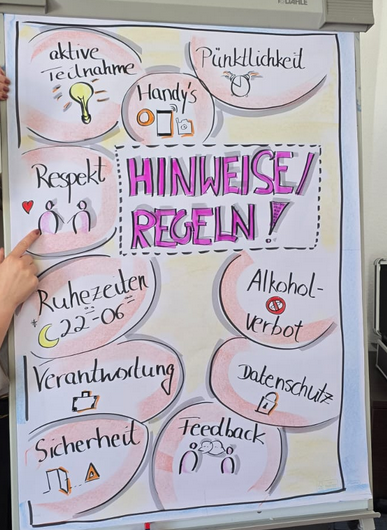 aktive
Teilnahme
Pünktlichkeit
Handy's
Respekt
HINWEISE/
REGELN!
Ruhezeiten
22-06
Alkohol-
verbot
Verantwortung
Datenschutz
Sicherheit
Feedback